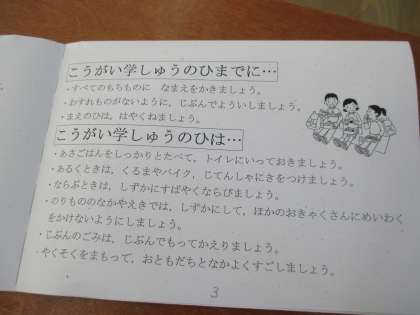 こうがい学しゅうのひまでに…
・すべてのもちものに　なまえをかきましょう。
・わすれものがないように，じぶんでよういしましょう。
・まえのひは，はやくねましょう。
こうがい学しゅうのひは…
・あさごはんをしっかりとたべて，トイレにいっておきましょう。
・あるくときは，くるまやバイク，じてんしゃにきをつけましょう。
・ならぶときは，しずかにすばやくならびましょう。
・のりもののなかやえきでは，しずかにして，ほかのおきゃくさんにめいわく
をかけないようにしましょう。
・じぶんのごみは，じぶんでもってかえりましょう。
・やくそくをまもって，おともだちとなかよくすごしましょう。
3